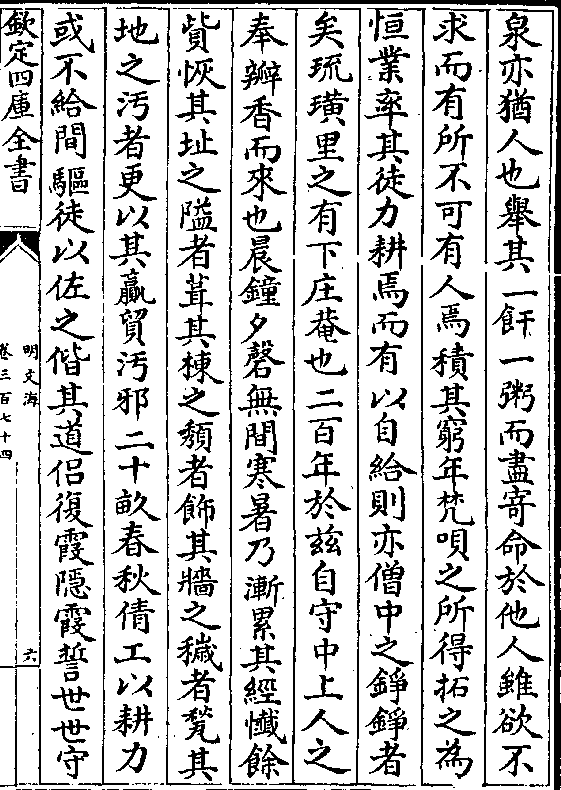 泉亦猶人也舉其一飦一粥而盡寄命於他人雖欲不
求而有所不可有人焉積其窮年梵唄之所得拓之為
恒業率其徒力耕焉而有以自給則亦僧中之錚錚者
矣琉璜里之有下庄菴也二百年於兹自守中上人之
奉瓣香而來也晨鐘夕磬無間寒暑乃漸累其經懺餘
貲恢其址之隘者葺其棟之頹者飾其牆之穢者甃其
地之汚者更以其贏貿汚邪二十畝春秋倩工以耕力
或不給間驅徒以佐之偕其道侣復霞隠霞誓世世守
欽定四庫全書
明文海
卷三百七十四
六